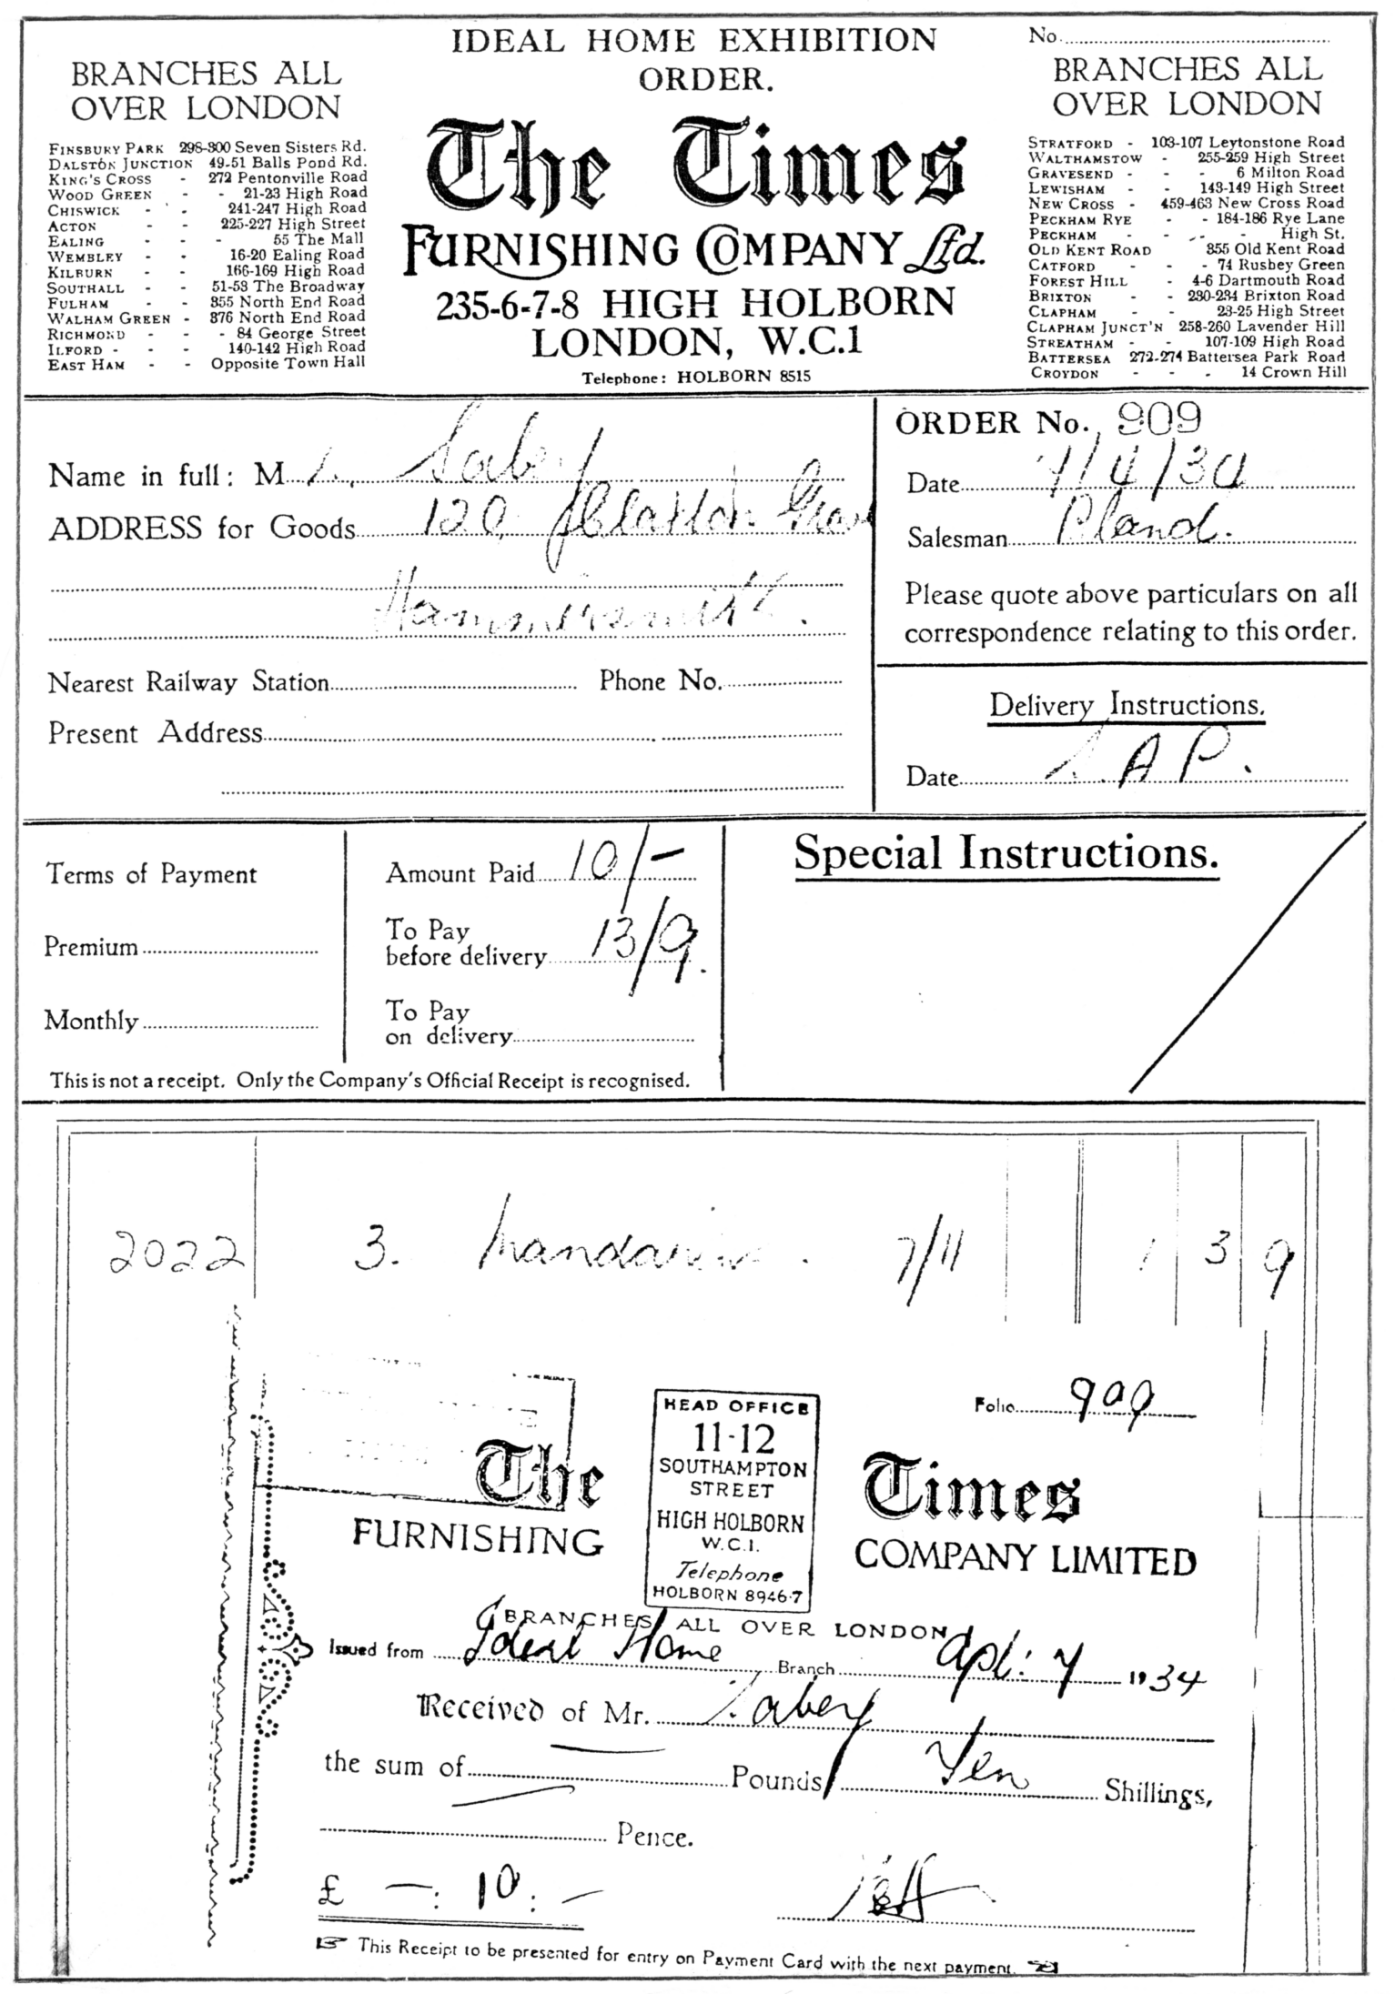 IDEAL HOME EXHIBITION
ORDER.
The Times
FURNISHING COMPANY Ltd.
235-6-7-8 HIGH HOLBORN
LONDON, W.C.1
Telephone: HOLBORN 8515
BRANCHES ALL
OVER LONDON
FINSBURY PARK 298-300 Seven Sisters Rd.
DALSTON JUNCTION 49-51 Balls Pond Rd.
KING'S CROSS - 272 Pentonville Road
WOOD GREEN - - 21-23 High Road
CHISWICK - - 241-247 High Road
ACTON - - 225-227 High Street
EALING - - - 55 The Mall
WEMBLEY - - 16-20 Ealing Road
KILBURN - - 166-169 High Road
SOUTHALL - - 51-53 The Broadway
FULHAM - - 355 North End Road
WALHAM GREEN - 376 North End Road
RICHMOND - - 84 George Street
ILFORD - - - 140-142 High Road
EAST HAM - - Opposite Town Hall
No.
BRANCHES ALL
OVER LONDON
STRATFORD - 103-107 Leytonstone Road
WALTHAMSTOW - 255-259 High Street
GRAVESEND - - - 6 Milton Road
LEWISHAM - - 143-149 High Street
NEW CROSS - 459-463 New Cross Road
PECKHAM RYE - - 184-186 Rye Lane
PECKHAM - - - High St.
OLD KENT ROAD 355 Old Kent Road
CATFORD - - - 74 Rusbey Green
FOREST HILL - 4-6 Dartmouth Road
BRIXTON - - 230-234 Brixton Road
CLAPHAM - - 23-25 High Street
CLAPHAM JUNCT'N 258-260 Lavender Hill
STREATHAM - - 107-109 High Road
BATTERSEA 272-274 Battersea Park Road
CROYDON - - - 14 Crown Hill
Name in full: M
ADDRESS for Goods 120
Hammersmith.
Nearest Railway Station Phone No.
Present Address
ORDER No. 909
Date 7/4/34
Salesman Bland.
Please quote above particulars on all
correspondence relating to this order.
Delivery Instructions.
Date A P.
Terms of Payment
Premium
Monthly
Amount Paid 10/-
To Pay
before delivery 13/9.
To Pay
on delivery
This is not a receipt. Only the Company's Official Receipt is recognised.
Special Instructions.
2022 3. 7/11 1 3 9
Folio 909
The Times
FURNISHING COMPANY LIMITED
HEAD OFFICE
11-12
SOUTHAMPTON
STREET
HIGH HOLBORN
W.C.1.
Telephone
HOLBORN 8946-7
BRANCHES ALL OVER LONDON
Issued from Ideal Home Branch Apl: 7 1934
Received of Mr.
the sum of — Pounds Ten Shillings,
— Pence.
£ —: 10: —
This Receipt to be presented for entry on Payment Card with the next payment.